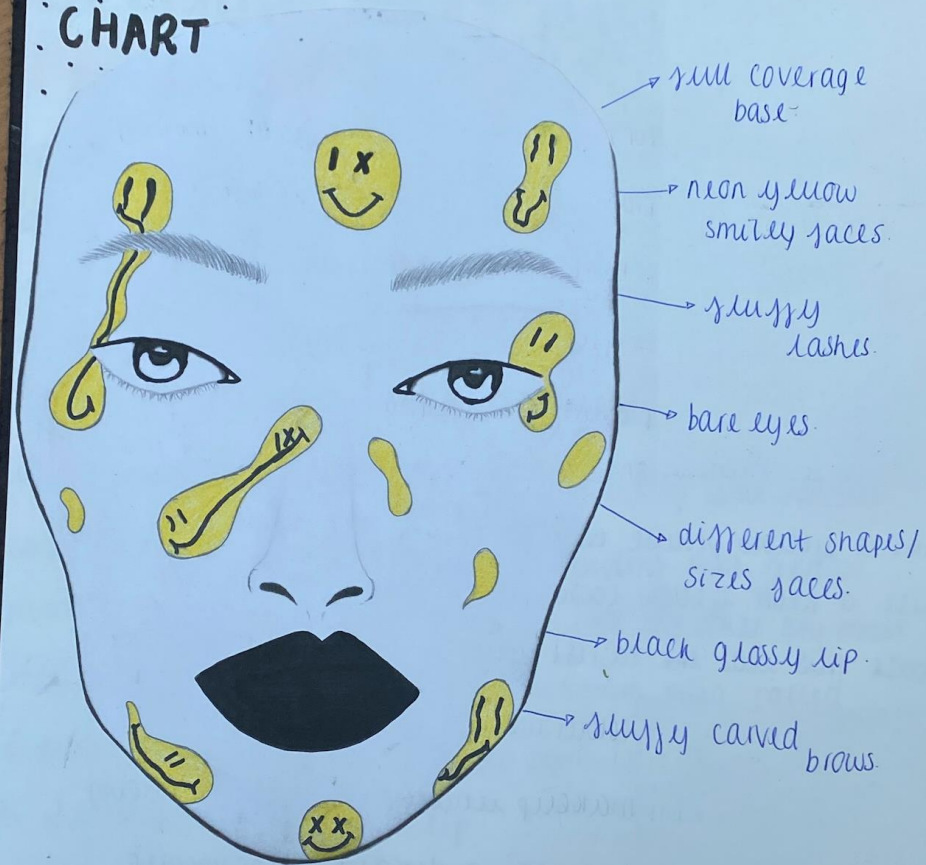 CHART
full coverage
base
neon yellow
smiley faces.
fluffy
lashes.
bare eyes.
different shapes/
sizes faces.
black glossy lip.
fluffy carved
brows.